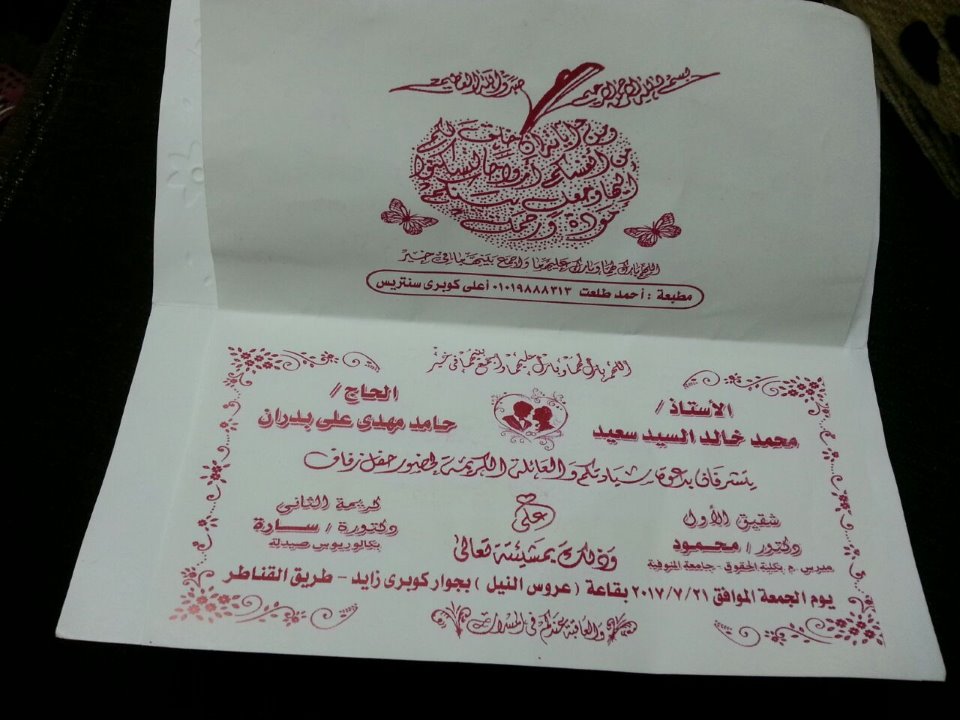 بسم الله الرحمن الرحيم
صدق الله العظيم
ومن آياته أن خلق لكم
من أنفسكم أزواجا لتسكنوا
إليها وجعل بينكم
مودة ورحمة
اللهم بارك لهما وبارك عليهما واجمع بينهما في خير
مطبعة : أحمد طلعت ٠١٠١٩٨٨٨٣١٣ أعلى كوبرى سنتريس
اللهم بارك لهما وبارك عليهما واجمع بينهما في خير
الأستاذ /
محمد خالد السيد سعيد
الحاج /
حامد مهدى على بدران
يتشرفان بدعوة سيادتكم والعائلة الكريمة لحضور حفل زفاف
شقيق الأول
دكتور / محمود
مدرس م. بكلية الحقوق - جامعة المنوفية
على
كريمة الثانى
دكتورة / سارة
بكالوريوس صيدلة
وذلك بمشيئة تعالى
يوم الجمعة الموافق ٢٠١٧/٧/٢١ بقاعة ( عروس النيل ) بجوار كوبرى زايد - طريق القناطر
والعاقبة عندكم في المسرات